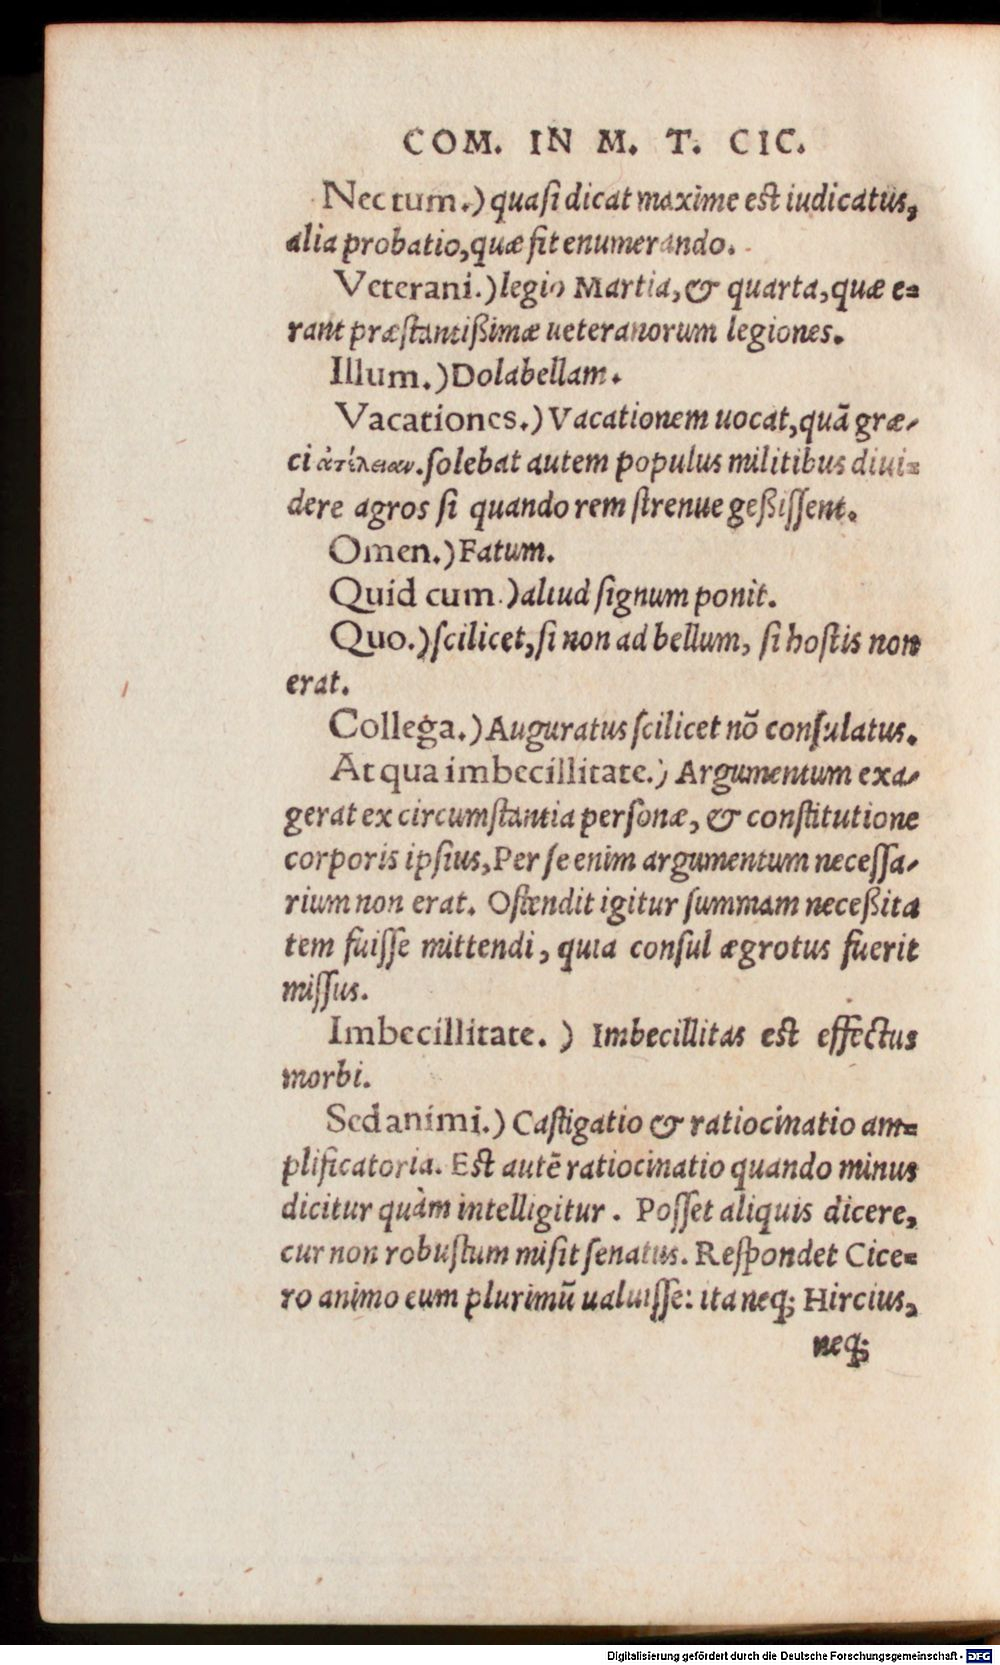 COM. IN M. T. CIC.
Nec tum.) quasi dicat maxime est iudicatus,
alia probatio, quæ fit enumerando.
Veterani.) legio Martia, & quarta, quæ e=
rant præstantißimæ ueteranorum legiones.
Illum.) Dolabellam.
Vacationes.) Vacationem uocat, quā græ-
ci ἀτέλειαν. solebat autem populus militibus diui=
dere agros si quando rem strenue geßissent.
Omen.) Fatum.
Quid cum.) aliud signum ponit.
Quo.) scilicet, si non ad bellum, si hostis non
erat.
Collega.) Auguratus scilicet nō consulatus.
At qua imbecillitate.) Argumentum exa-
gerat ex circumstantia personæ, & constitutione
corporis ipsius, Per se enim argumentum necessa-
rium non erat. Ostendit igitur summam neceßita
tem fuisse mittendi, quia consul ægrotus fuerit
missus.
Imbecillitate.) Imbecillitas est effectus
morbi.
Sed animi.) Castigatio & ratiocinatio am=
plificatoria. Est autē ratiocinatio quando minus
dicitur quàm intelligitur. Posset aliquis dicere,
cur non robustum misit senatus. Respondet Cice=
ro animo eum plurimū ualuisse: ita neq; Hircius,
neq;
Digitalisierung gefördert durch die Deutsche Forschungsgemeinschaft - DFG